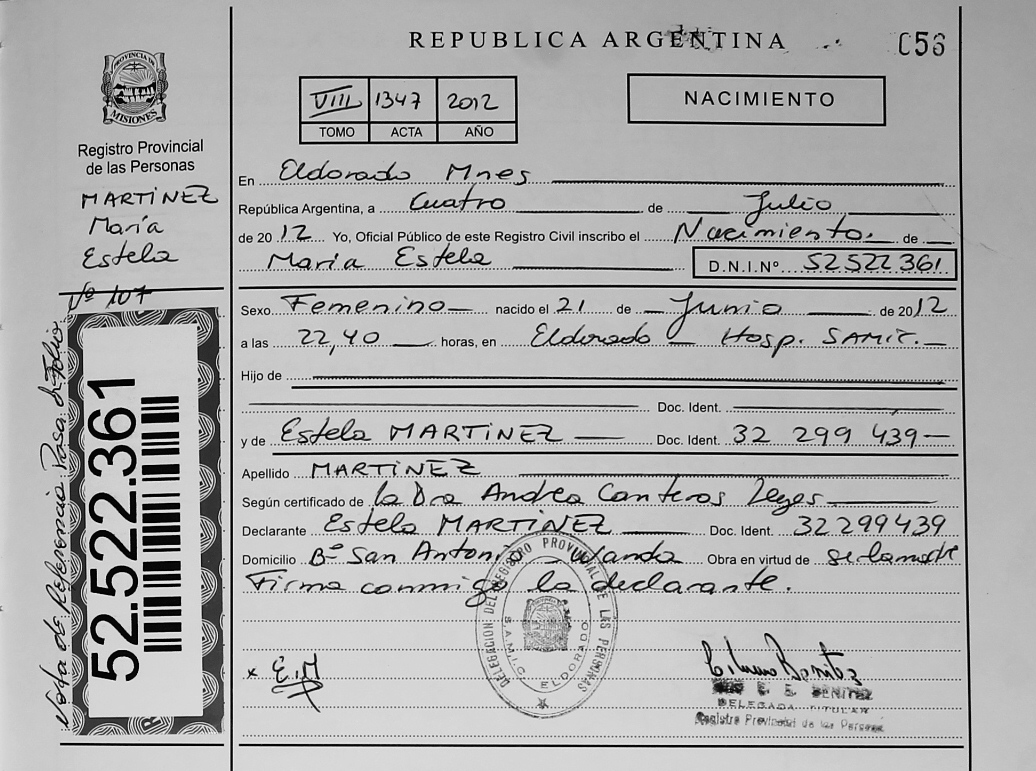 REPUBLICA ARGENTINA
C56
PROVINCIA DE MISIONES
VIII 1347 2012
TOMO ACTA AÑO
NACIMIENTO
Registro Provincial
de las Personas
MARTINEZ
María
Estela
Nº 107
Nota de Referencia Pasa al Folio
52.522.361
En Eldorado Mnes
República Argentina, a Cuatro de Julio
de 2012 Yo, Oficial Público de este Registro Civil inscribo el Nacimiento de
María Estela D.N.I.Nº 52522361
Sexo Femenino nacido el 21 de Junio de 2012
a las 22,40 horas, en Eldorado Hosp. SAMIC.
Hijo de
Doc. Ident.
y de Estela MARTINEZ Doc. Ident. 32 299 439
Apellido MARTINEZ
Según certificado de la Dra Andrea Canteros
Declarante Estela MARTINEZ Doc. Ident. 32299439
Domicilio Bº San Antonio Wanda Obra en virtud de ser la madre
Firma conmigo la declarante.
DELEGACION DEL REGISTRO PROVINCIAL DE LAS PERSONAS
S.A.M.I.C. ELDORADO
x E.M
E. E. BENITEZ
DELEGADA TITULAR
Registro Provincial de las Personas